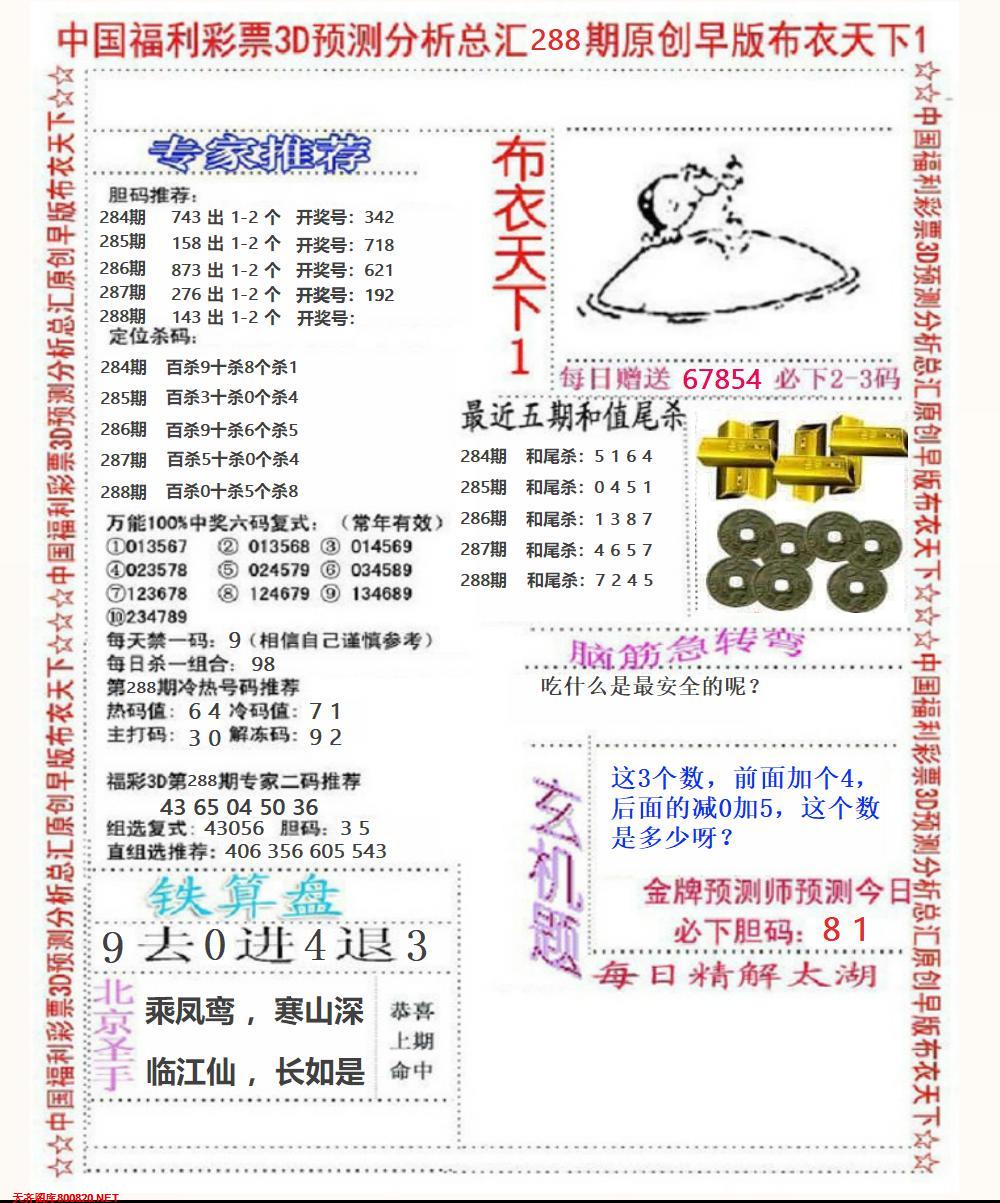 中国福利彩票3D预测分析总汇288期原创早版布衣天下1
☆☆中国福利彩票3D预测分析总汇原创早版布衣天下☆☆中国福利彩票3D预测分析总汇原创早版布衣天下☆☆
专家推荐
胆码推荐:
284期 743 出 1-2 个 开奖号: 342
285期 158 出 1-2 个 开奖号: 718
286期 873 出 1-2 个 开奖号: 621
287期 276 出 1-2 个 开奖号: 192
288期 143 出 1-2 个 开奖号:
定位杀码:
284期 百杀9十杀8个杀1
285期 百杀3十杀0个杀4
286期 百杀9十杀6个杀5
287期 百杀5十杀0个杀4
288期 百杀0十杀5个杀8
万能100%中奖六码复式: (常年有效)
①013567 ② 013568 ③ 014569
④023578 ⑤ 024579 ⑥ 034589
⑦123678 ⑧ 124679 ⑨ 134689
⑩234789
每天禁一码: 9 (相信自己谨慎参考)
每日杀一组合: 98
第288期冷热号码推荐
热码值: 6 4 冷码值: 7 1
主打码: 3 0 解冻码: 9 2
福彩3D第288期专家二码推荐
43 65 04 50 36
组选复式: 43056 胆码: 3 5
直组选推荐: 406 356 605 543
铁算盘
9去0进4退3
北京圣手
乘凤鸾，寒山深
临江仙，长如是
恭喜
上期
命中
布衣天下1
每日赠送 67854 必下2-3码
最近五期和值尾杀
284期 和尾杀: 5 1 6 4
285期 和尾杀: 0 4 5 1
286期 和尾杀: 1 3 8 7
287期 和尾杀: 4 6 5 7
288期 和尾杀: 7 2 4 5
脑筋急转弯
吃什么是最安全的呢？
玄机题
这3个数，前面加个4，
后面的减0加5，这个数
是多少呀？
金牌预测师预测今日
必下胆码: 8 1
每日精解太湖
☆☆中国福利彩票3D预测分析总汇原创早版布衣天下☆☆中国福利彩票3D预测分析总汇原创早版布衣天下☆☆
天齐图库800820.NET